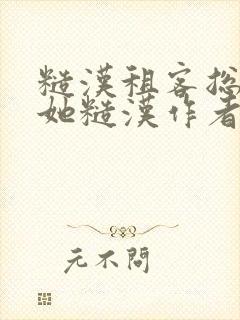 糙漢租客捴
她糙漢作者
元不問